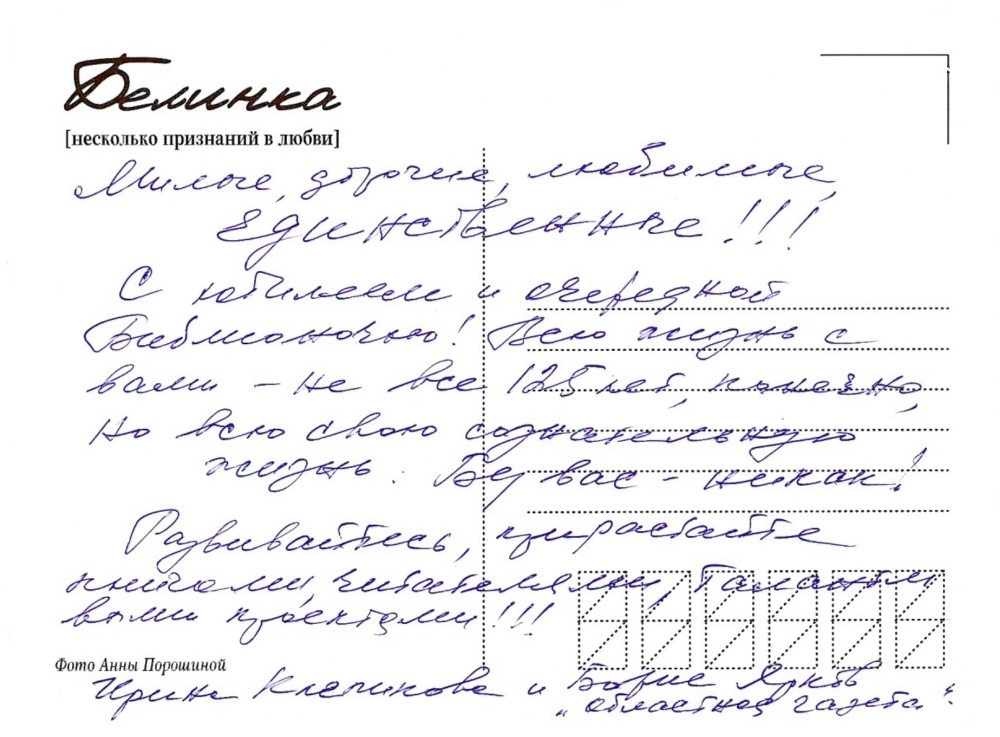 Белинка
[несколько признаний в любви]
Милые, дорогие, любимые,
Единственные!!!
С юбилеем и очередной
Библионочью! Всю жизнь с
вами – не все 125 лет, конечно,
но всю свою сознательную
жизнь. Без вас – никак!
Развивайтесь, прирастайте
книгами, читателями, талантли
выми проектами!!!
Фото Анны Порошиной
Ирина Клепикова и Борис Ярков
"Областная газета".